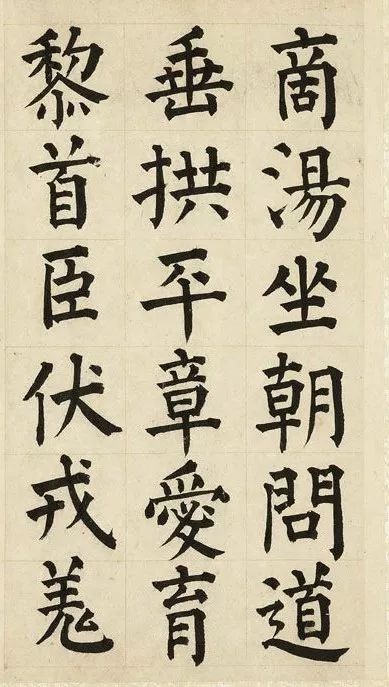 商湯坐朝問道
垂拱平章愛育
黎首臣伏戎羌